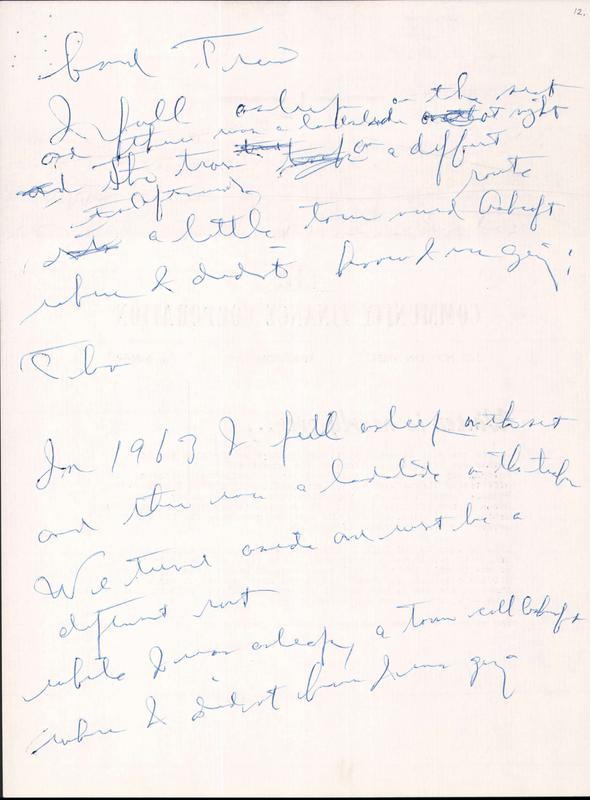 12.
I fell asleep in the seat
and there was a landslide at night
and the train on a different
route
a little town named
where I didn't know I was going;
In 1963 I fell asleep in the seat
and there was a landslide on the track
We turned aside and went by a
different route
while I was asleep, a town called
where I didn't know I was going
COMMUNITY FINANCE CORPORATION